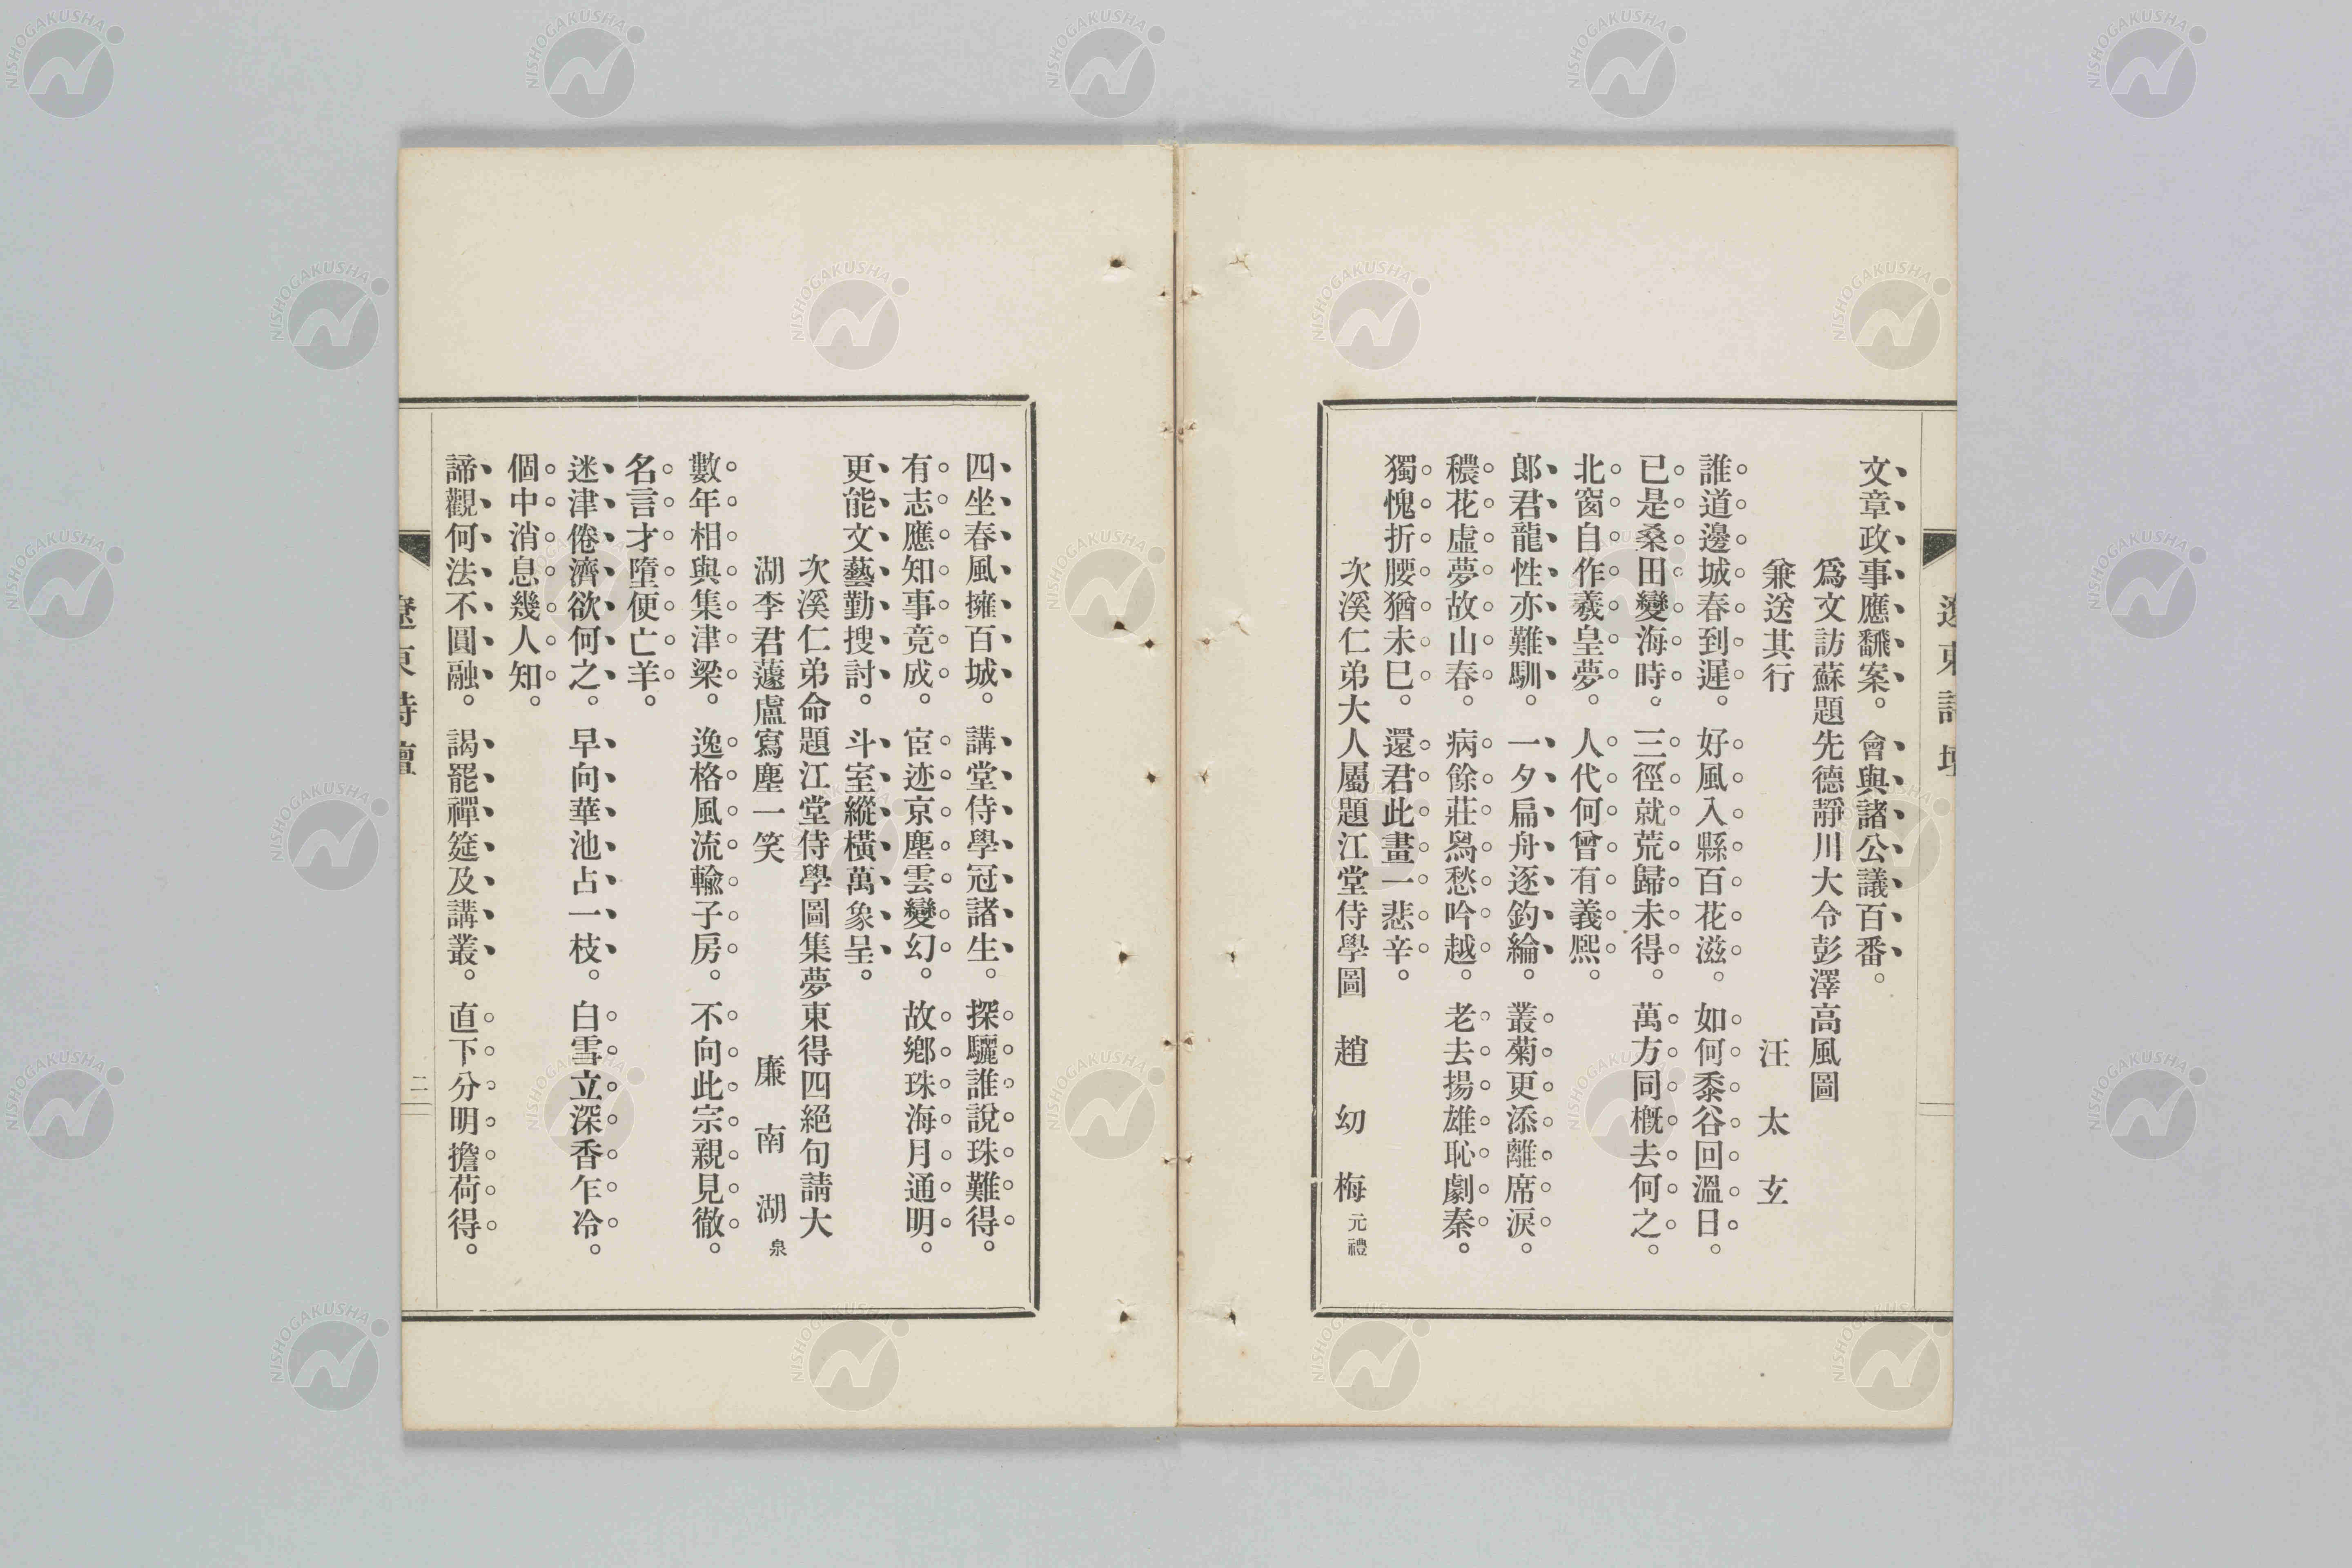 文章政事應飜案。會與諸公議百番。
爲文訪蘇題先德靜川大令彭澤高風圖
兼送其行　汪太玄
誰道邊城春到遲。好風入縣百花滋。如何黍谷回溫日。
已是桑田變海時。三徑就荒歸未得。萬方同槪去何之。
北窗自作羲皇夢。人代何曾有義熙。
郞君龍性亦難馴。一夕扁舟逐釣綸。叢菊更添離席淚。
穠花虛夢故山春。病餘莊舃愁吟越。老去揚雄恥劇秦。
獨愧折腰猶未巳。還君此畫一悲辛。
次溪仁弟大人屬題江堂侍學圖　趙幼梅元禮
遼東詩壇
四坐春風擁百城。講堂侍學冠諸生。探驪誰說珠難得。
有志應知事竟成。宦迹京塵雲變幻。故鄕珠海月通明。
更能文藝勤搜討。斗室縱橫萬象呈。
次溪仁弟命題江堂侍學圖集夢東得四絕句請大
湖李君蘧盧寫塵一笑　廉南湖泉
數年相與集津梁。逸格風流輸子房。不向此宗親見徹。
名言才墮便亡羊。
迷津倦濟欲何之。早向華池占一枝。白雪立深香乍冷。
個中消息幾人知。
諦觀何法不圓融。謁罷禪筵及講叢。直下分明擔荷得。
遼東詩壇
二
NISHOGAKUSHA